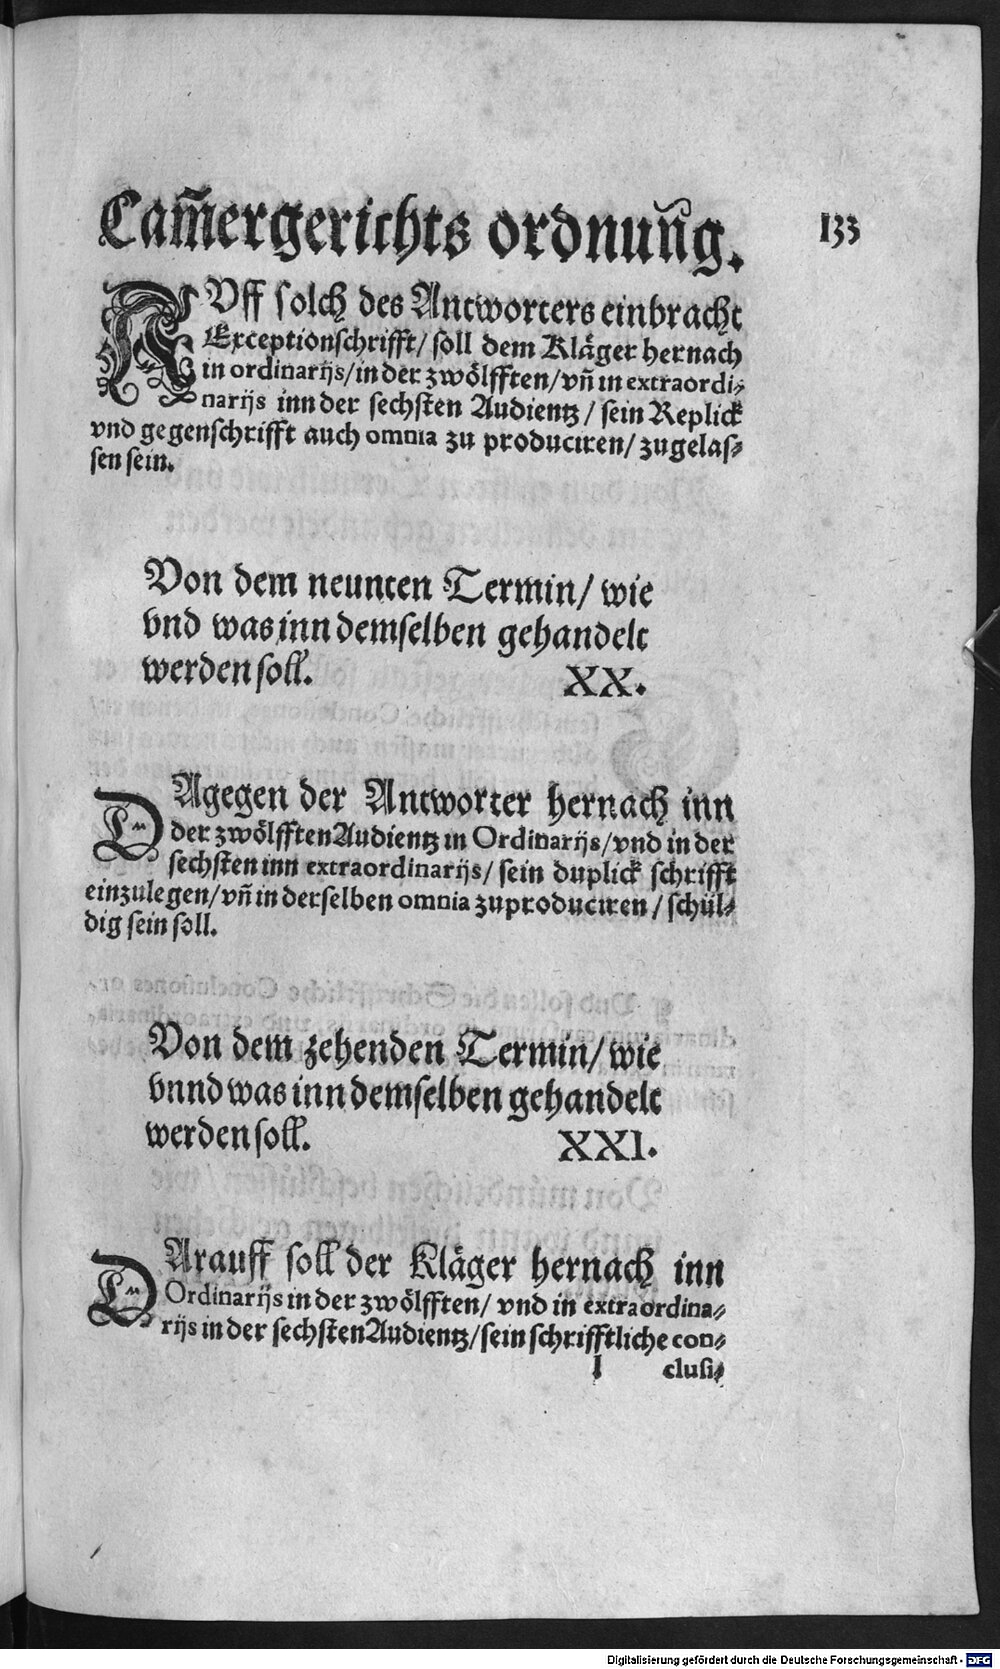 Cam̃ergerichts ordnuñg. 133
AVff solch des Antworters einbracht
Exceptionschrifft/ soll dem Kläger hernach
in ordinarijs/ in der zwölfften/ vñ in extraordi⸗
narijs inn der sechsten Audientz/ sein Replick
vnd gegenschrifft auch omnia zu produciren/ zugelas⸗
sen sein.
Von dem neunten Termin/ wie
vnd was inn demselben gehandelt
werden soll. XX.
DAgegen der Antworter hernach inn
der zwölfften Audientz in Ordinarijs/ vnd in der
sechsten inn extraordinarijs/ sein duplick schrifft
einzulegen/ vñ in derselben omnia zuproduciren/ schül⸗
dig sein soll.
Von dem zehenden Termin/ wie
vnnd was inn demselben gehandelt
werden soll. XXI.
DArauff soll der Kläger hernach inn
Ordinarijs in der zwölfften/ vnd in extraordina⸗
rijs in der sechsten Audientz/ sein schrifftliche con⸗
I clusi⸗
Digitalisierung gefördert durch die Deutsche Forschungsgemeinschaft - DFG